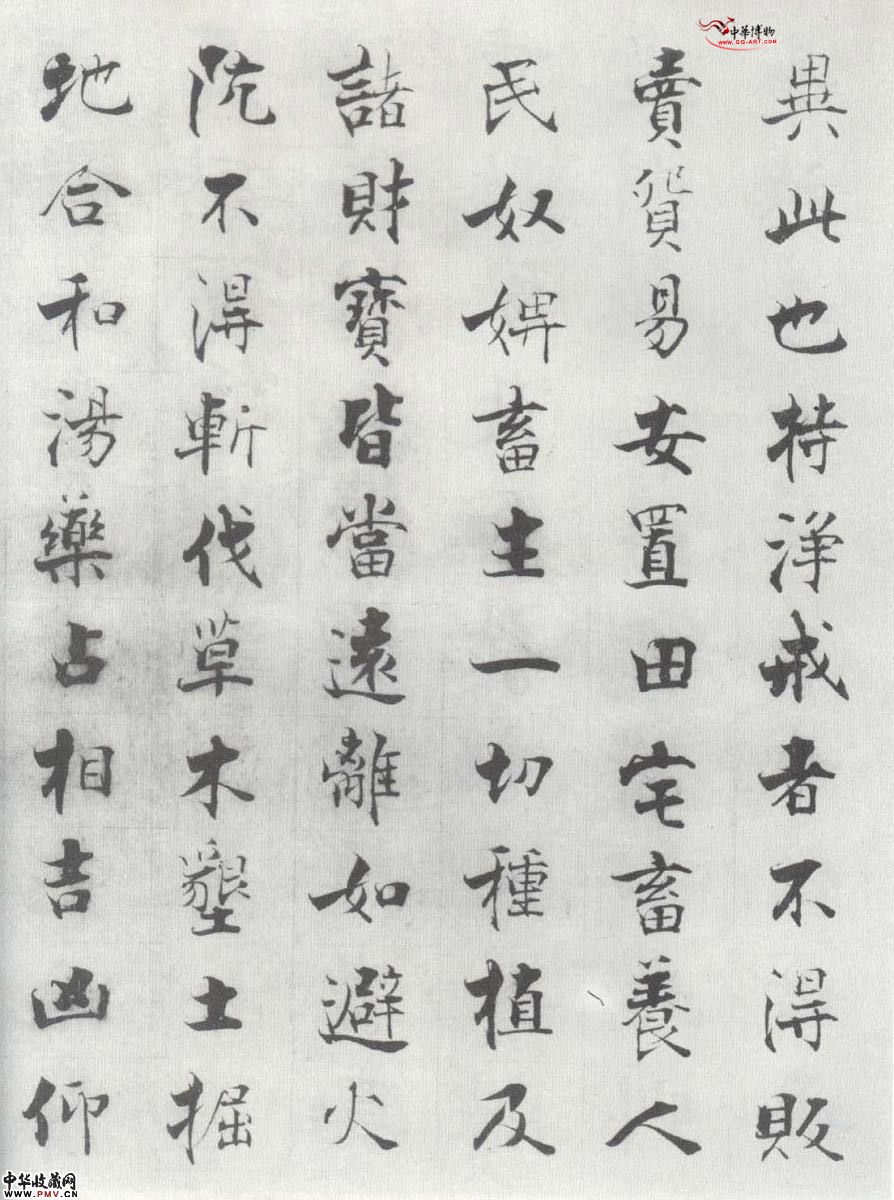 中華博物
WWW.GG-ART.COM
異此也持淨戒者不得販
賣貿易安置田宅畜養人
民奴婢畜主一切種植及
諸財寶皆當遠離如避火
阬不得斬伐草木墾土掘
地合和湯藥占相吉凶仰
中华收藏网
WWW.PMV.CN